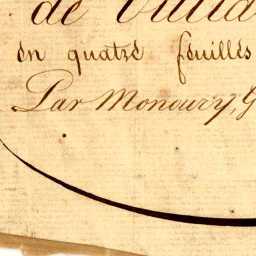 de
en quatre feuilles
Par Monoury, G